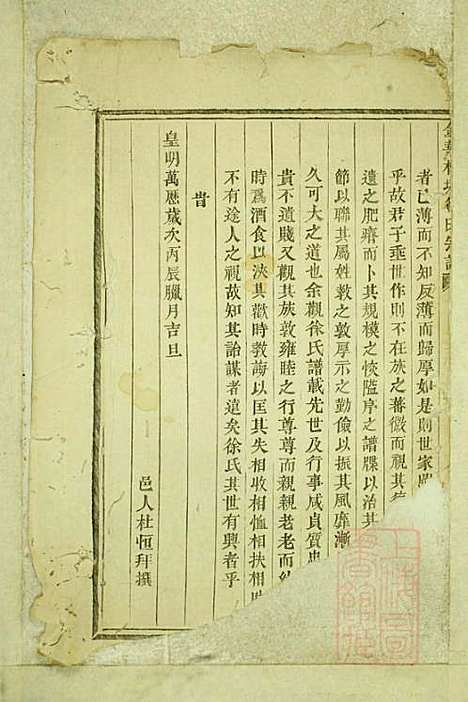 者已薄而不知反薄而歸厚如是則世家
乎故君子垂世作則不在族之蕃微而視其德
遺之肥瘠而卜其規模之恢隘序之譜牒以治其
節以聯其屬姓教之敦厚示之勤儉以振其風靡漸
久可大之道也余觀徐氏譜載先世及行事咸貞質忠
貴不遺賤又觀其族敦雍睦之行尊尊而親親老老而幼
時爲酒食以浹其歡時教誨以匡其失相收恤相扶相
不有途人之視故知其詒謀者遠矣徐氏其世有興者乎
旹
皇明萬歷歲次丙辰臘月吉旦
邑人杜恒拜撰